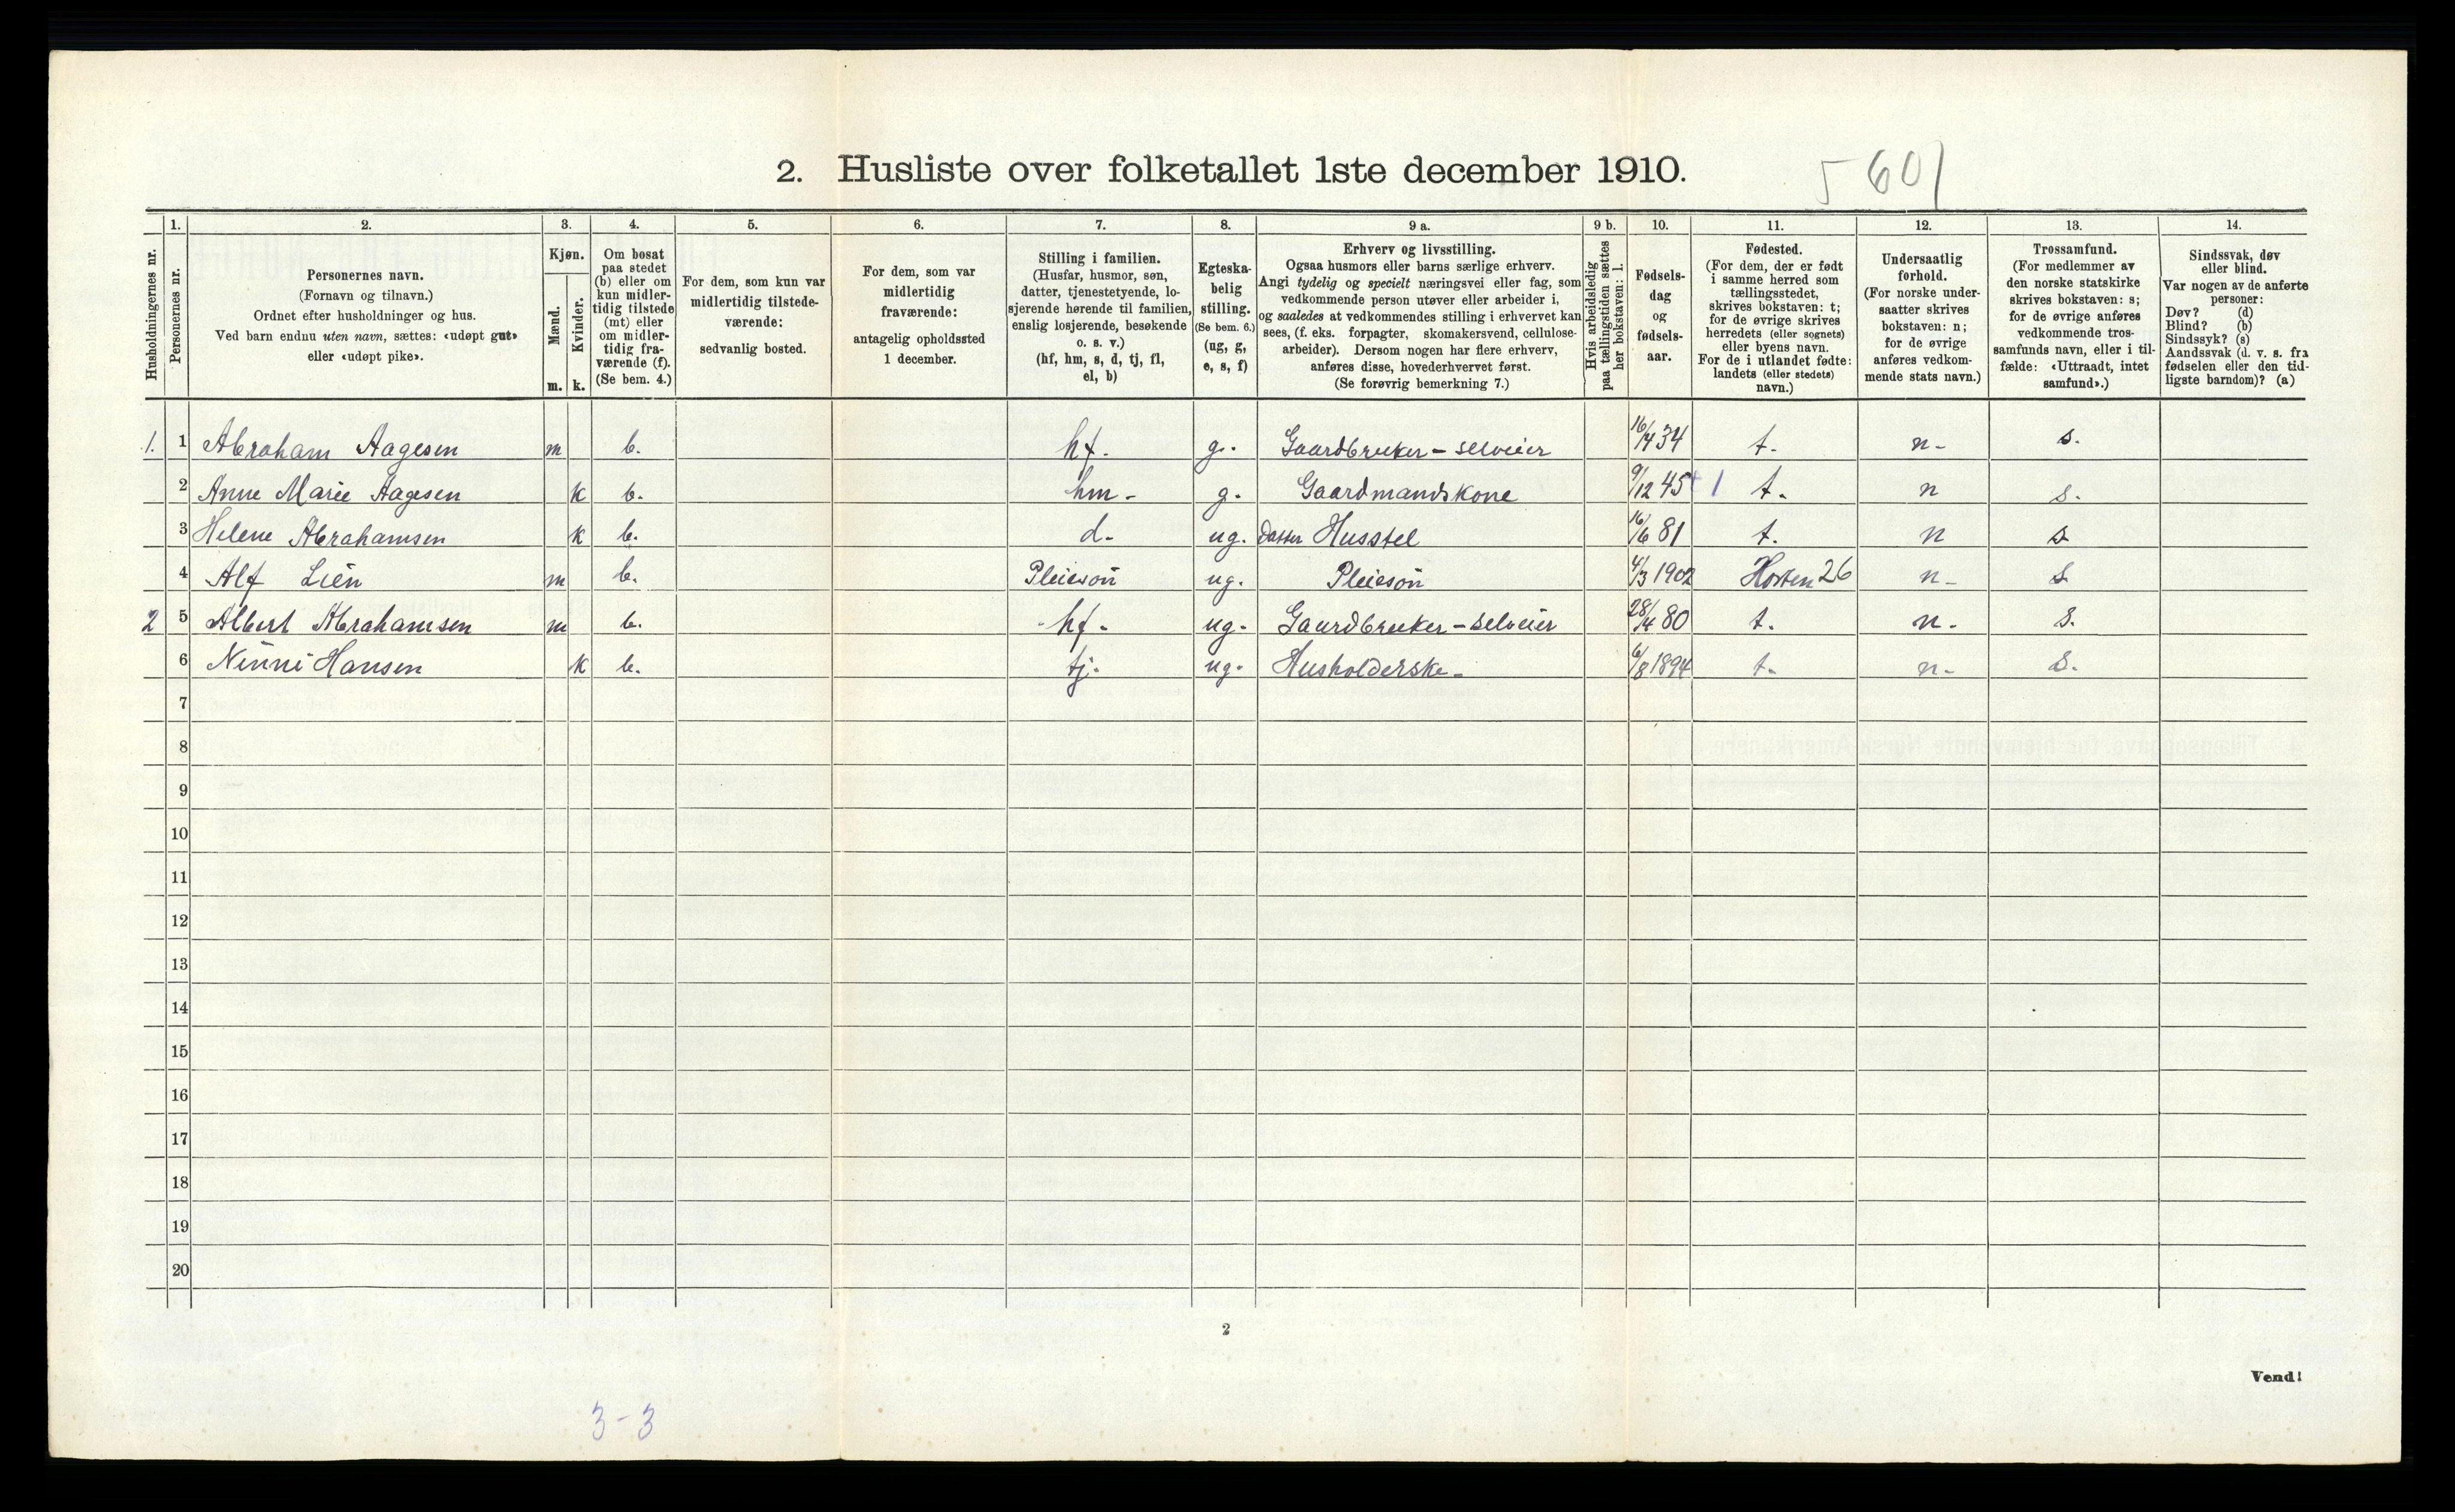 2. Husliste over folketallet 1ste december 1910.
5 601
Husholdningernes nr.
1.
Personernes nr.
2.
Personernes navn.
(Fornavn og tilnavn.)
Ordnet efter husholdninger og hus.
Ved barn endnu uten navn, sættes: «udøpt gut»
eller «udøpt pike».
3.
Kjøn.
Mænd.
Kvinder.
m. k.
4.
Om bosat
paa stedet
(b) eller om
kun midler-
tidig tilstede
(mt) eller
om midler-
tidig fra-
værende (f).
(Se bem. 4.)
5.
For dem, som kun var
midlertidig tilstede-
værende:
sedvanlig bosted.
6.
For dem, som var
midlertidig
fraværende:
antagelig opholdssted
1 december.
7.
Stilling i familien.
(Husfar, husmor, søn,
datter, tjenestetyende, lo-
sjerende hørende til familien,
enslig losjerende, besøkende
o. s. v.)
(hf, hm, s, d, tj, fl,
el, b)
8.
Egteska-
belig
stilling.
(Se bem. 6.)
(ug, g,
e, s, f)
9 a.
Erhverv og livsstilling.
Ogsaa husmors eller barns særlige erhverv.
Angi tydelig og specielt næringsvei eller fag, som
vedkommende person utøver eller arbeider i,
og saaledes at vedkommendes stilling i erhvervet kan
sees, (f. eks. forpagter, skomakersvend, cellulose-
arbeider). Dersom nogen har flere erhverv,
anføres disse, hovederhvervet først.
(Se forøvrig bemerkning 7.)
9 b.
Hvis arbeidsledig
paa tællingstiden sættes
her bokstaven: l.
10.
Fødsels-
dag
og
fødsels-
aar.
11.
Fødested.
(For dem, der er født
i samme herred som
tællingsstedet,
skrives bokstaven: t;
for de øvrige skrives
herredets (eller sognets)
eller byens navn.
For de i utlandet fødte:
landets (eller stedets)
navn.)
12.
Undersaatlig
forhold.
(For norske under-
saatter skrives
bokstaven: n;
for de øvrige
anføres vedkom-
mende stats navn.)
13.
Trossamfund.
(For medlemmer av
den norske statskirke
skrives bokstaven: s;
for de øvrige anføres
vedkommende tros-
samfunds navn, eller i til-
fælde: «Uttraadt, intet
samfund».)
14.
Sindssvak, døv
eller blind.
Var nogen av de anførte
personer:
Døv? (d)
Blind? (b)
Sindssyk? (s)
Aandssvak (d. v. s. fra
fødselen eller den tid-
ligste barndom)? (a)
1. 1 Abraham Aagesen m b. hf. g. Gaardbruker - selveier 16/4 34 t. n- s.
2 Anne Marie Aagesen k b. hm- g. Gaardmandskone 9/12 45 + 1 t. n s.
3 Helene Abrahamsen k b. d- ug. Datter Husstel 16/6 81 t. n s
4 Alf Lien m b. Pleiesøn ug. Pleiesøn 4/3 1902 Horten 26 n- s.
2 5 Albert Abrahamsen m b. hf. ug- Gaardbruker - selveier 28/4 80 t. n- s.
6 Ninni Hansen k b. tj. ug. Husholderske- 6/8 1894 t. n- s.
7
8
9
10
11
12
13
14
15
16
17
18
19
20
2
Vend!
3-3